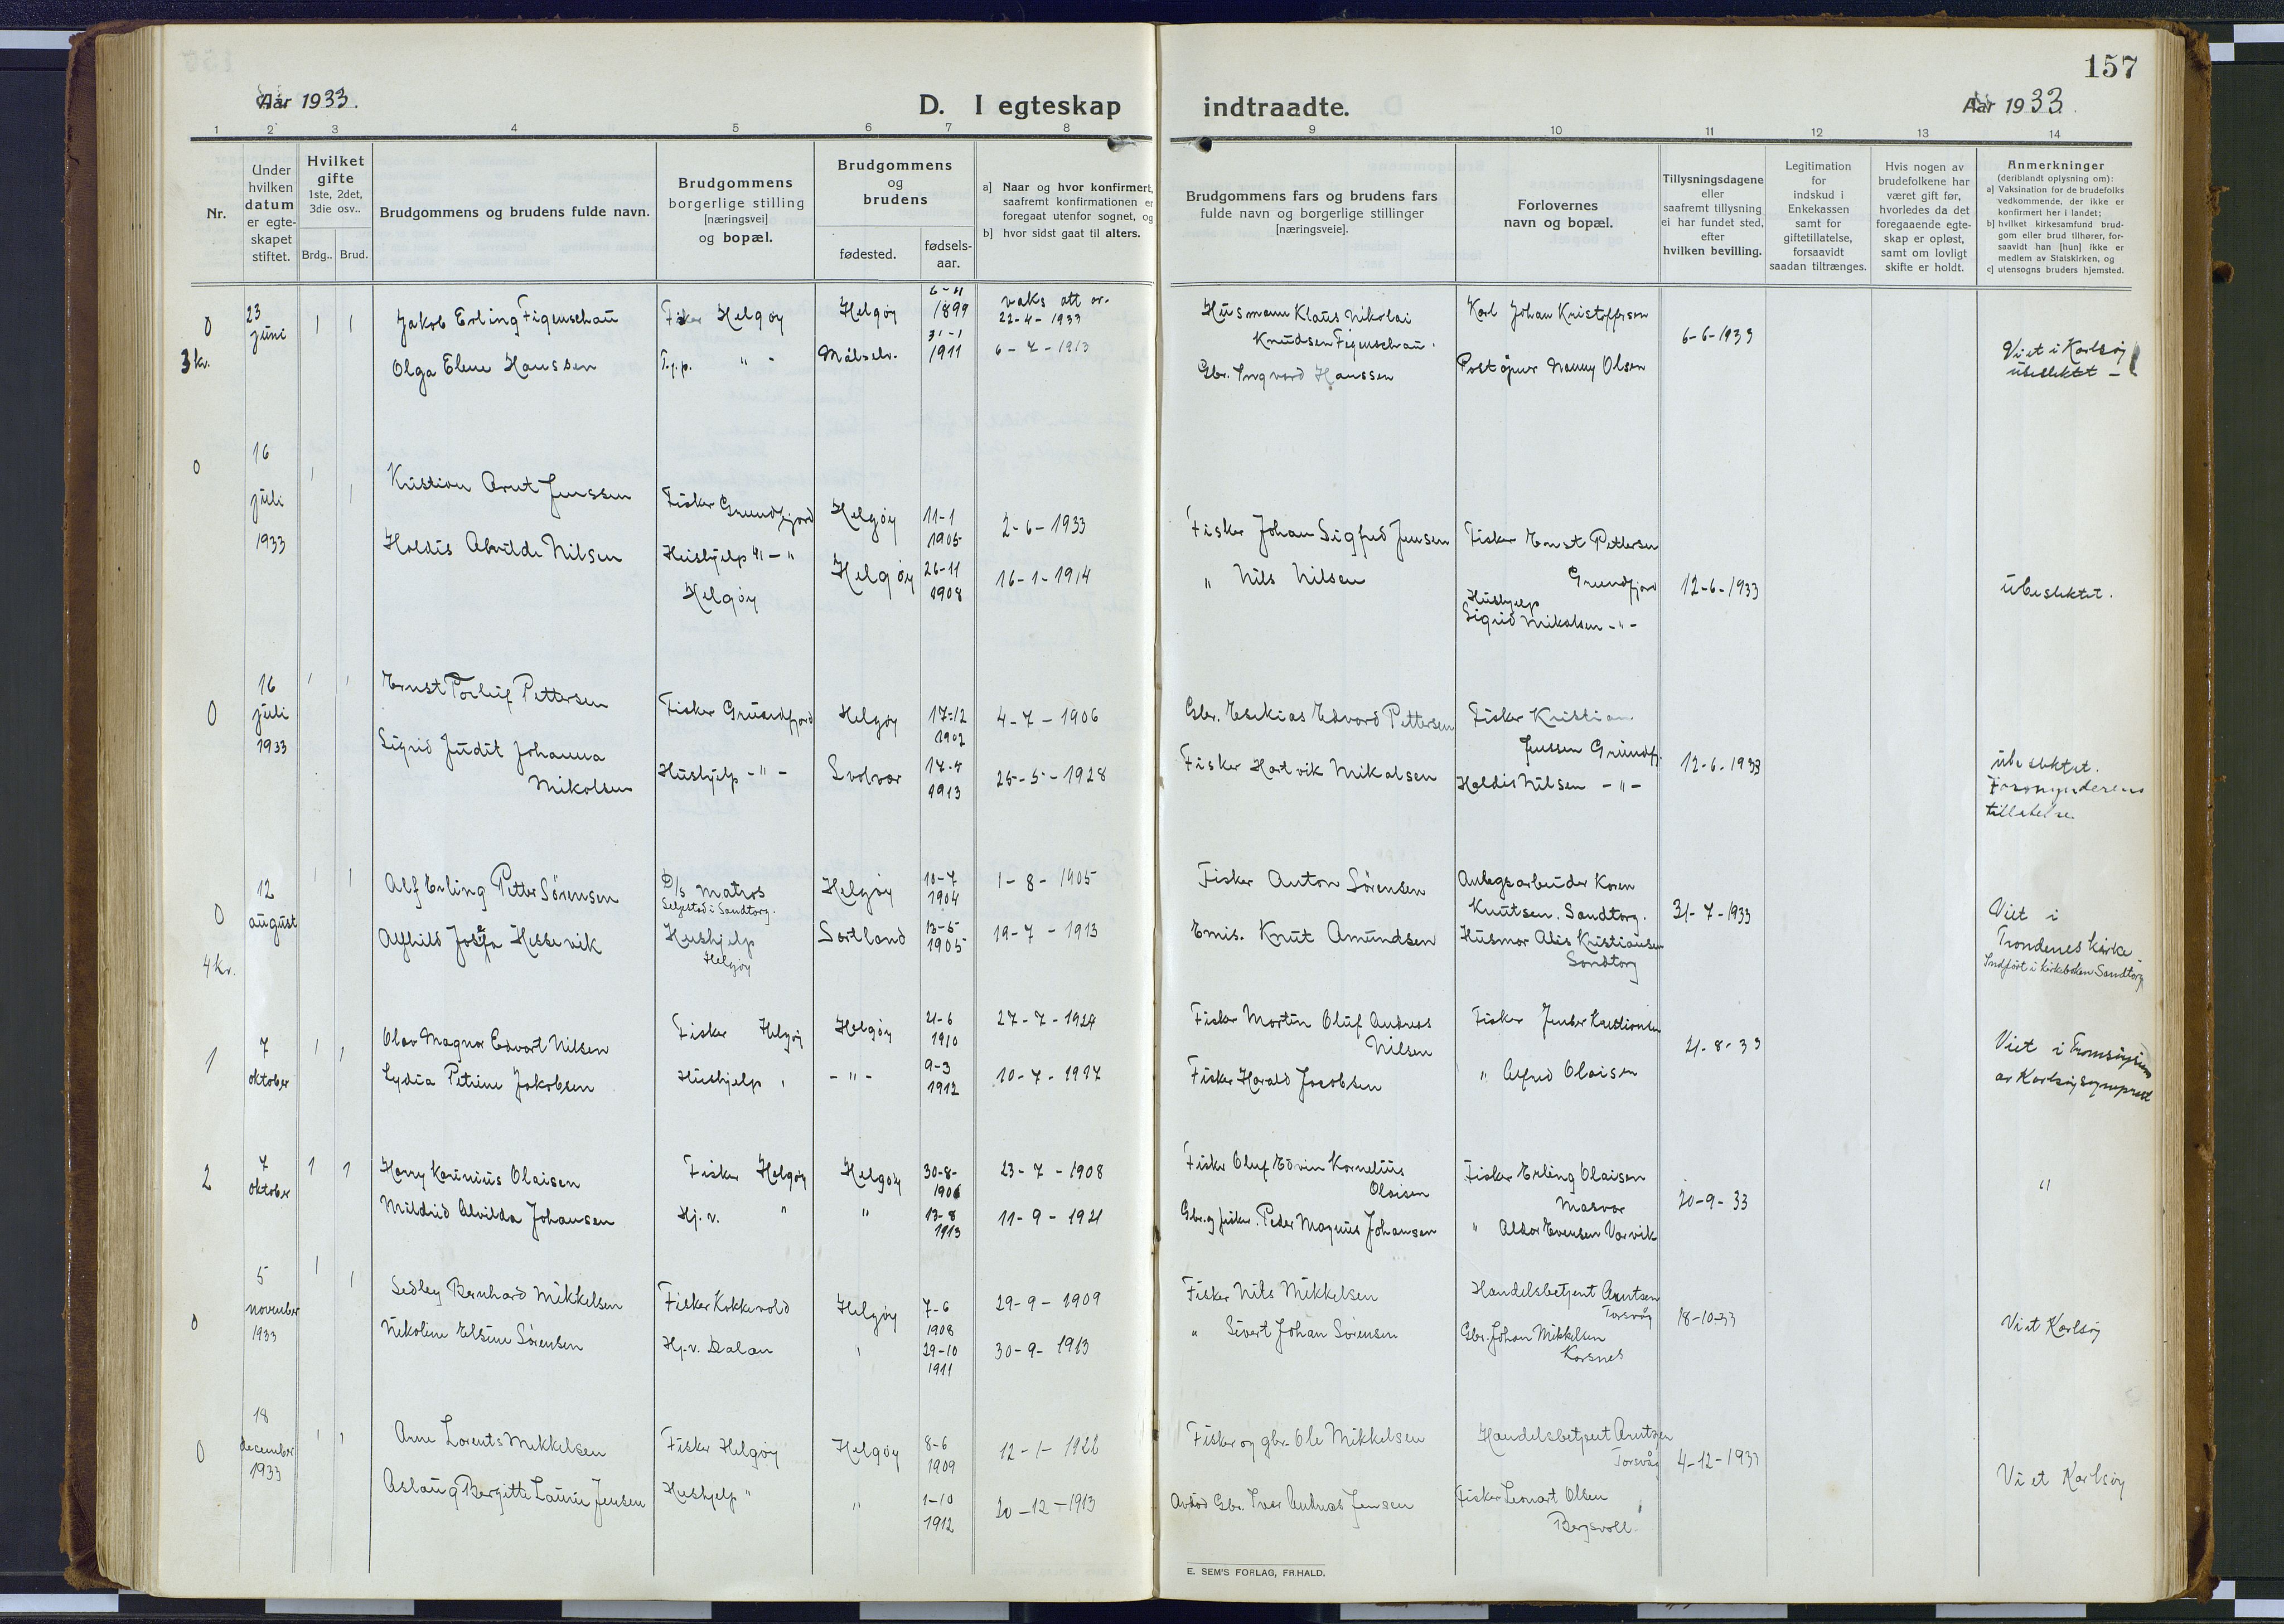 157
Aar 1933.
D. I egteskap indtraadte.
Aar 1933.
1 2 3 4 5 6 7 8 9 10 11 12 13 14
Nr.
Under
hvilken
datum
er egte-
skapet
stiftet.
Hvilket
gifte
1ste, 2det,
3die osv..
Brdg.. Brud.
Brudgommens og brudens fulde navn.
Brudgommens
borgerlige stilling
[næringsvei]
og bopæl.
Brudgommens
og
brudens
fødested.
fødsels-
aar.
a] Naar og hvor konfirmert,
saafremt konfirmationen er
foregaat utenfor sognet, og
b] hvor sidst gaat til alters.
Brudgommens fars og brudens fars
fulde navn og borgerlige stillinger
[næringsveie].
Forlovernes
navn og bopæl.
Tillysningsdagene
eller
saafremt tillysning
ei har fundet sted,
efter
hvilken bevilling.
Legitimation
for
indskud i
Enkekassen
samt for
giftetillatelse,
forsaavidt
saadan tiltrænges.
Hvis nogen av
brudefolkene har
været gift før,
hvorledes da det
foregaaende egte-
skap er opløst,
samt om lovligt
skifte er holdt.
Anmerkninger
(deriblandt oplysning om):
a] Vaksination for de brudefolks
vedkommende, der ikke er
konfirmert her i landet;
b] hvilket kirkesamfund brud-
gom eller brud tilhører, for-
saavidt han [hun] ikke er
medlem av Statskirken, og
c] utensogns bruders hjemsted.
0
3 kr.
23
juni
1 1
Jakob Erling Figenschau
Fisker Helgøy
Helgøy
6-11
1899
vaks att av.
22-4-1933
Husmann Klaus Nikolai
Knudsen Figenschau.
Karl Johan Kristoffersen
6-6-1933
Olga Elene Hanssen
T.j.p. " -
Målselv.
31-1
1911
6-7-1913
Gbr. Ingvard Hanssen
Poståpner Nanny Olsen
Viet i Karlsøy
ubeslektet -
0
16
juli
1933
1 1
Kristian Arnt Jenssen
Fisker Grundfjord
Helgøy
11-1
1905
2-6-1933
Fisker Johan Sigfred Jensen
Fisker Ernst Pettersen
Grundfjord
12-6-1933
Holdis Alvilde Nilsen
Hushjelp " - "
Helgøy
Helgøy
26-11
1908
16-1-1914
" Nils Nilsen
Hushjelp
Sigrid Mikalsen - " -
ubeslektet.
0
16
juli
1933
1 1
Ernst Torleif Pettersen
Fisker Grundfjord
Helgøy
17-12
1902
4-7-1906
Gbr. Esekias Edvard Pettersen
Fisker Kristian
Jenssen Grundfj.
12-6-1933
Sigrid Judit Johanna
Mikalsen
Hushjelp - " -
Svolvær
17-5
1913
25-5-1928
Fisker Hartvik Mikalsen
Holdis Nilsen - " -
ubeslektet.
Formynderens
tillatelse.
0
4 kr.
12
august
1 1
Alf Erling Petter Sørensen
D/s Matros
Selgestad i Sandtorg.
Helgøy
10-7
1904
1-8-1905
Fisker Anton Sörensen
Anlegsarbeider Koren
Knutsen. Sandtorg.
31-7-1933
Alfhild Josefa Hessevik
Hushjelp
Helgøy
Sortland
13-5
1905
19-7-1913
Emis. Knut Amundsen
Husmor Alis Kristiansen
Sandtorg
Viet i
Trondenes kirke -
Indført i kirkeboken Sandtorg
1
7
oktober
1 1
Olav Magnor Edvart Nilsen
Fisker Helgøy
Helgøy
21-6
1910
27-7-1924
Fisker Martin Oluf Andreas
Nilsen
Fisker Jenber Kristiansen
21-8-33
Lydia Petrine Jakobsen
Hushjelp "
- " -
9-3
1912
10-7-1917
Fisker Harald Jacobsen
" Alfred Olaisen
Viet i Tromsøysund
av Karlsøy sogneprest
2
7
oktober
1 1
Harry Karinius Olaisen
Fisker Helgøy
Helgøy
30-8-
1906
23-7-1908
Fisker Oluf Edvin Kornelius
Olaisen
Fisker Erling Olaisen
Masvær
20-9-33
Mildrid Alvilda Johansen
Hj. v. "
"
13-8
1913
11-9-1921
Gbr. og fisker. Peder Magnus Johansen
" Aldor Evensen Vorvik
"
0
5
november
1933
1 1
Sedley Bernhard Mikkelsen
Fisker Kokkevold
Helgøy
7-6
1908
29-9-1909
Fisker Nils Mikkelsen
Handelsbetjent Arntsen
Torsvåg
18-10-33
Nikoline Elsine Sörensen
Hj. v. Dalan
"
29-10
1911
30-9-1913
" Sivert Johan Sørensen
Gbr. Johan Mikkelsen
Korsnes
Viet Karlsøy
0
18
december
1933
1 1
Arne Lorents Mikkelsen
Fisker Helgøy
Helgøy
8-6
1909
12-1-1922
Fisker og gbr. Ole Mikkelsen
Handelsbetjent Arntsen
Torsvåg
4-12-1933
Aslaug Bergitte Laura Jensen
Hushjelp "
"
1-10
1912
20-12-1913
Avdød Gbr. Iver Andreas Jensen
Fisker Leonart Olsen
Bergsvoll.
Viet Karlsøy
E. SEM'S FORLAG, FR.HALD.